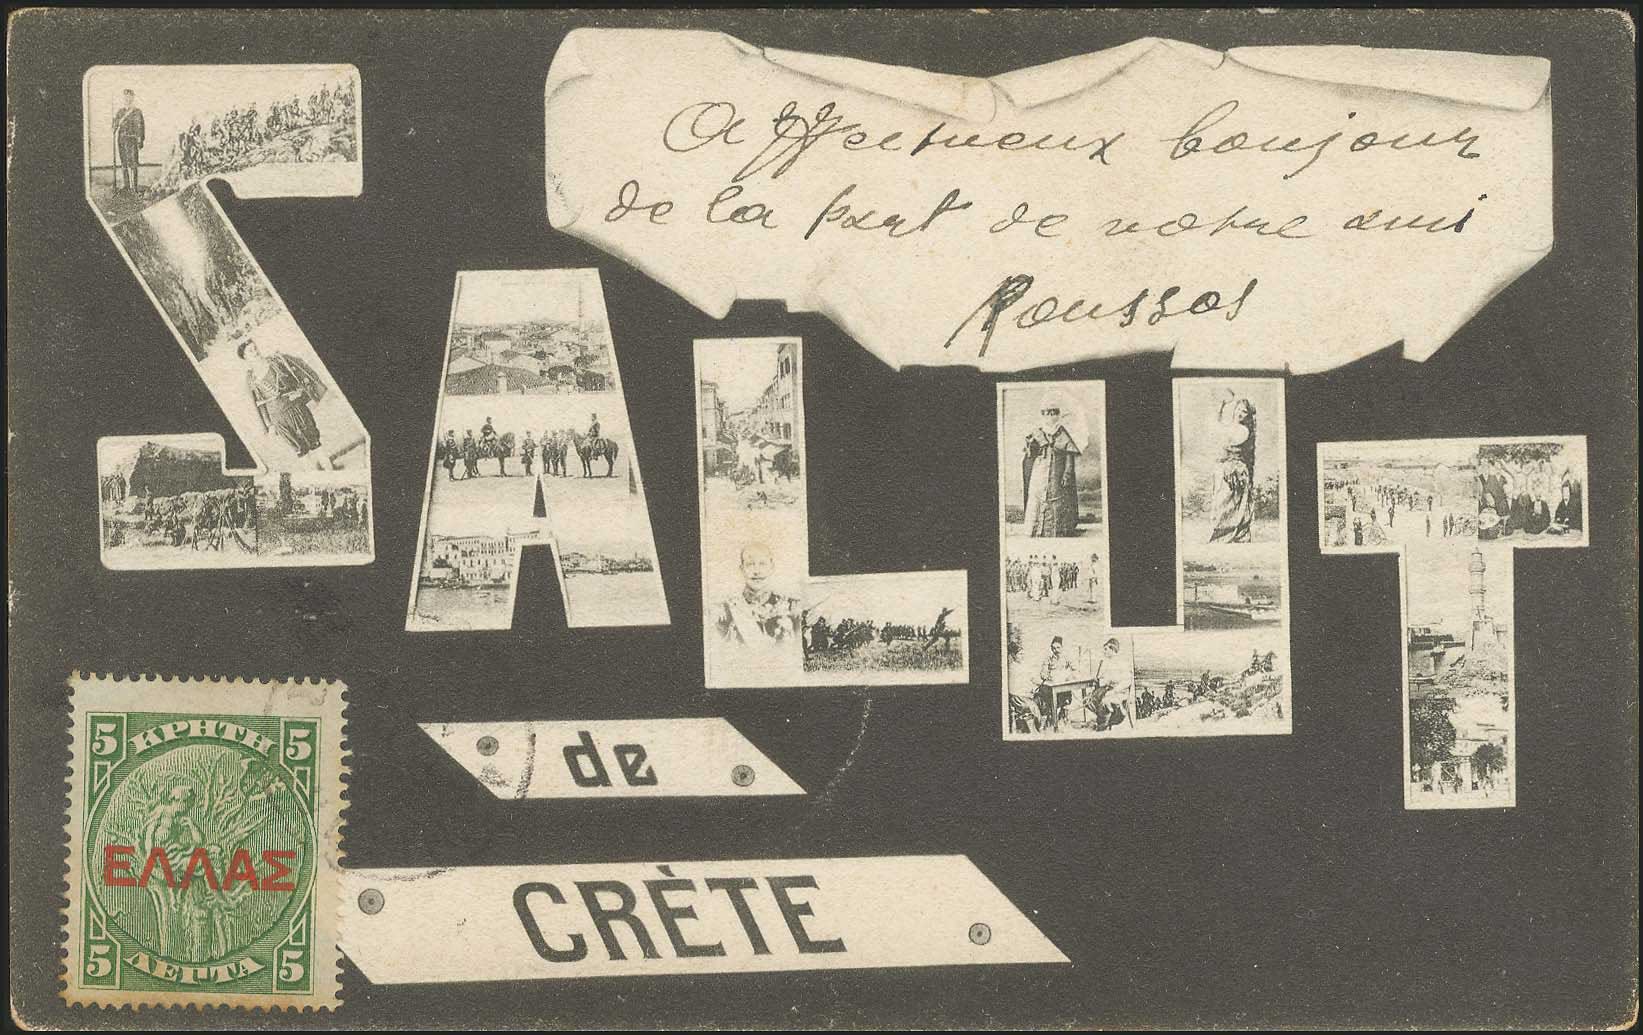 Affectueux bonjour
de la part de votre ami
Roussos
SALUT
de
CRÈTE
5 ΚΡΗΤΗ 5
ΕΛΛΑΣ
5 ΛΕΠΤΑ 5